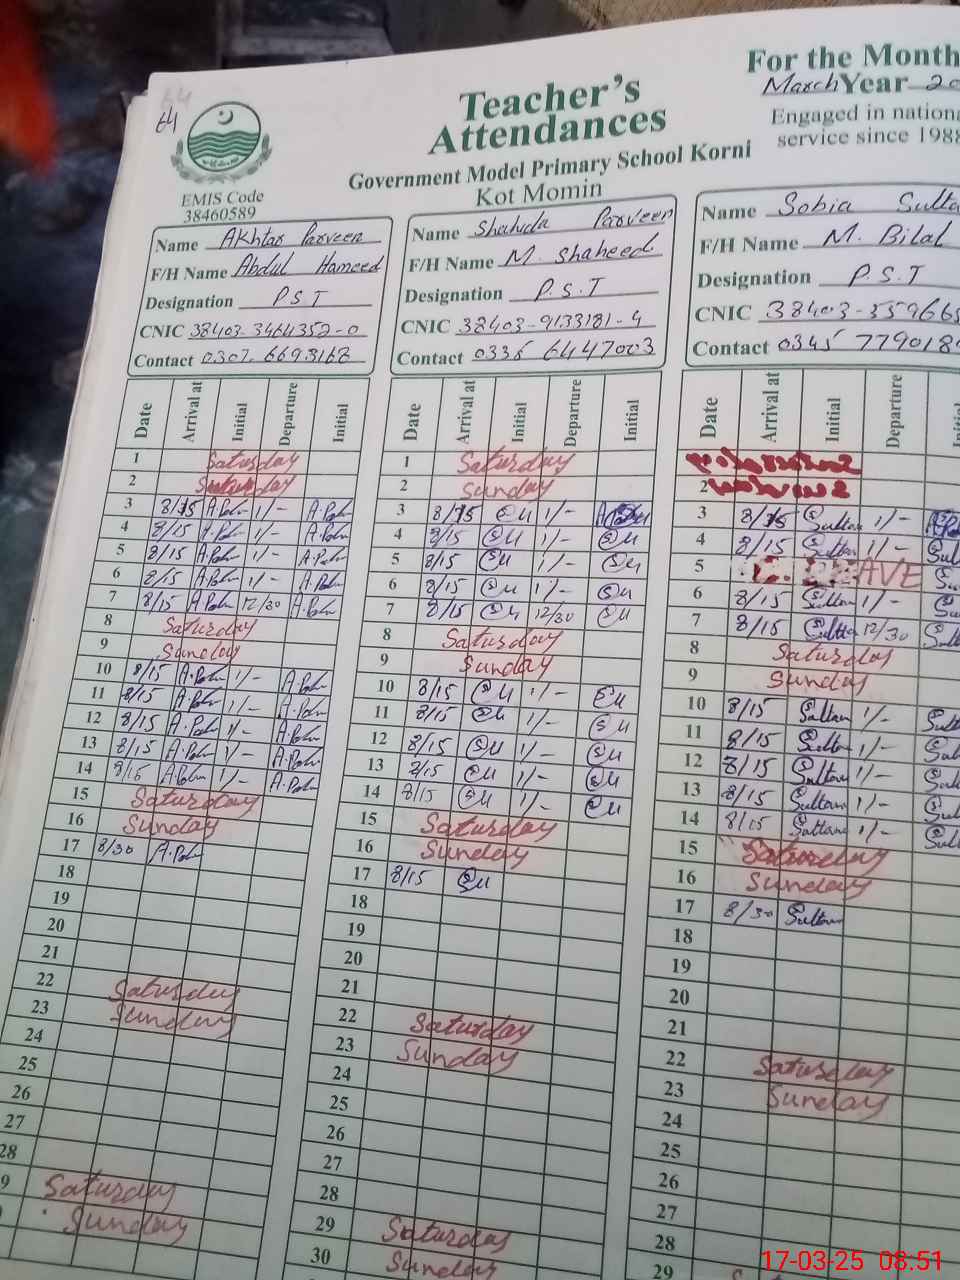 64
Teacher's
Attendances
For the Month
March Year 20
Engaged in nationa
service since 1988
Government Model Primary School Korni
Kot Momin
EMIS Code
38460589
Name Akhtar Parveen
F/H Name Abdul Hameed
Designation P S T
CNIC 38403-3464352-0
Contact 0307-6693168
Date Arrival at Initial Departure Initial
1 Saturday
2 Saturday
3 8/15 A.Palm 1/- A.Palm
4 8/15 A.Palm 1/- A.Palm
5 8/15 A.Palm 1/- A.Palm
6 8/15 A.Palm 1/- A.Palm
7 8/15 A.Palm 12/30 A.Palm
8 Saturday
9 Sunday
10 8/15 A.Palm 1/- A.Palm
11 8/15 A.Palm 1/- A.Palm
12 8/15 A.Palm 1/- A.Palm
13 8/15 A.Palm 1/- A.Palm
14 8/15 A.Palm 1/- A.Palm
15 Saturday
16 Sunday
17 8/30 A.Palm
18
19
20
21
22 Saturday
23 Sunday
24
25
26
27
28
9 Saturday
Sunday
Name Shahida Parveen
F/H Name M. Shaheed
Designation P.S.T
CNIC 38403-9133181-4
Contact 0335 6447003
Date Arrival at Initial Departure Initial
1 Saturday
2 Sunday
3 8/15 1/-
4 8/15 1/-
5 8/15 1/-
6 8/15 1/-
7 8/15 12/30
8 Saturday
9 Sunday
10 8/15 1/-
11 8/15 1/-
12 8/15 1/-
13 8/15 1/-
14 8/15 1/-
15 Saturday
16 Sunday
17 8/15
18
19
20
21
22 Saturday
23 Sunday
24
25
26
27
28
29 Saturday
30 Sunday
Name Sobia Sulta
F/H Name M. Bilal
Designation P.S.T
CNIC 38403-559665
Contact 0345 779018
Date Arrival at Initial Departure Initi
2
3 8/15 Sultan 1/-
4 8/15 Sultan 1/- Sul
5 LEAVE
6 8/15 Sultan 1/-
7 8/15 Sultan 12/30
8 Saturday
9 Sunday
10 8/15 Sultan 1/- Sult
11 8/15 Sultan 1/- Sul
12 8/15 Sultan 1/- Sul
13 8/15 Sultan 1/- Sul
14 8/15 Sultan 1/- Sul
15 Saturday
16 Sunday
17 8/30 Sultan
18
19
20
21
22 Saturday
23 Sunday
24
25
26
27
28
29
17-03-25 08.51